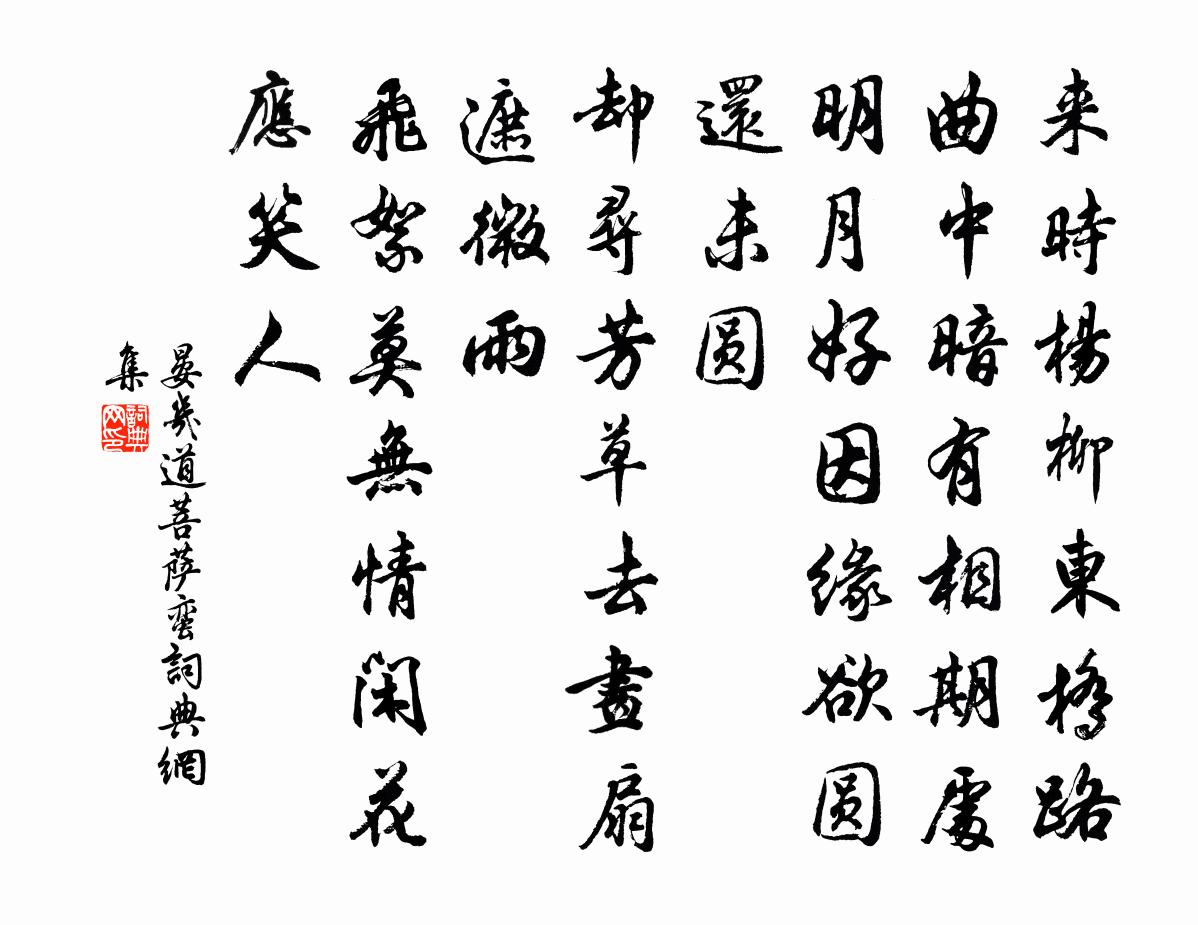 来時楊柳東橋路
曲中暗有相期處
明月好因緣欲圆
還未圆
却尋芳草去畫扇
遮微雨
飛絮莫無情閑花
應笑人
晏幾道菩薩蛮詞典網
集
詞典网印